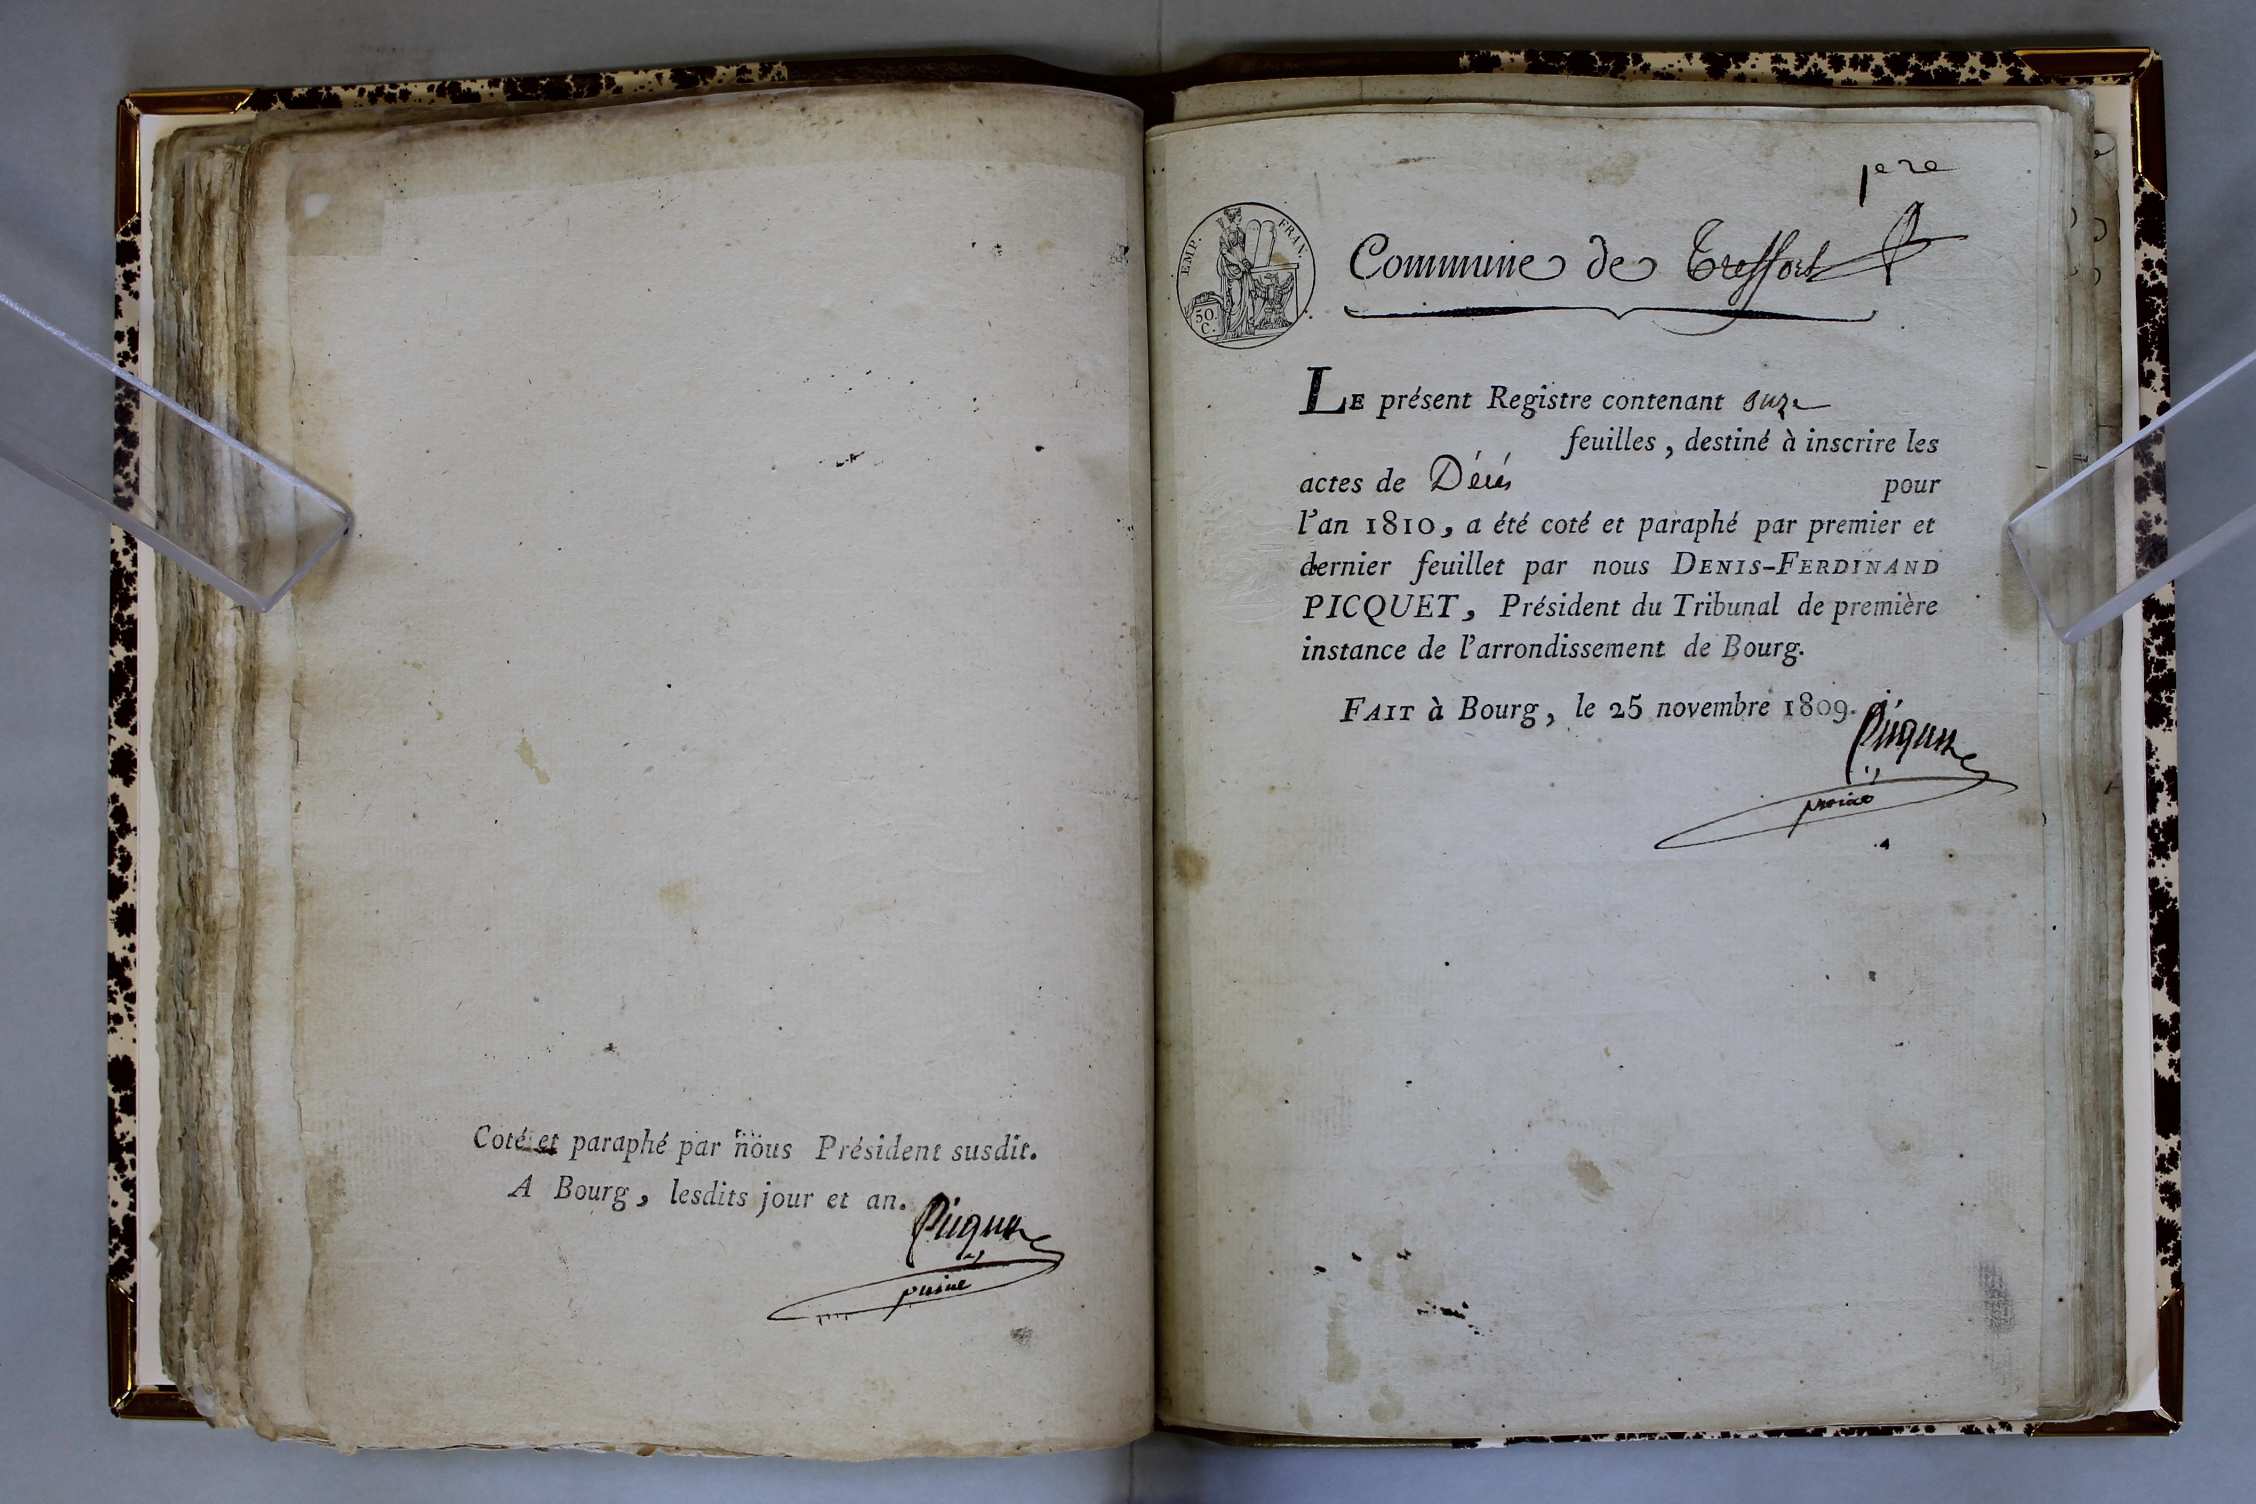 Coté et paraphé par nous Président susdit.
A Bourg, lesdits jour et an.
Picquet
1ere
EMP. FRAN.
50.
C.
Commune de Treffort
LE présent Registre contenant onze
feuilles, destiné à inscrire les
actes de Décés pour
l'an 1810, a été coté et paraphé par premier et
dernier feuillet par nous DENIS-FERDINAND
PICQUET, Président du Tribunal de première
instance de l'arrondissement de Bourg.
FAIT à Bourg, le 25 novembre 1809.
Picquet